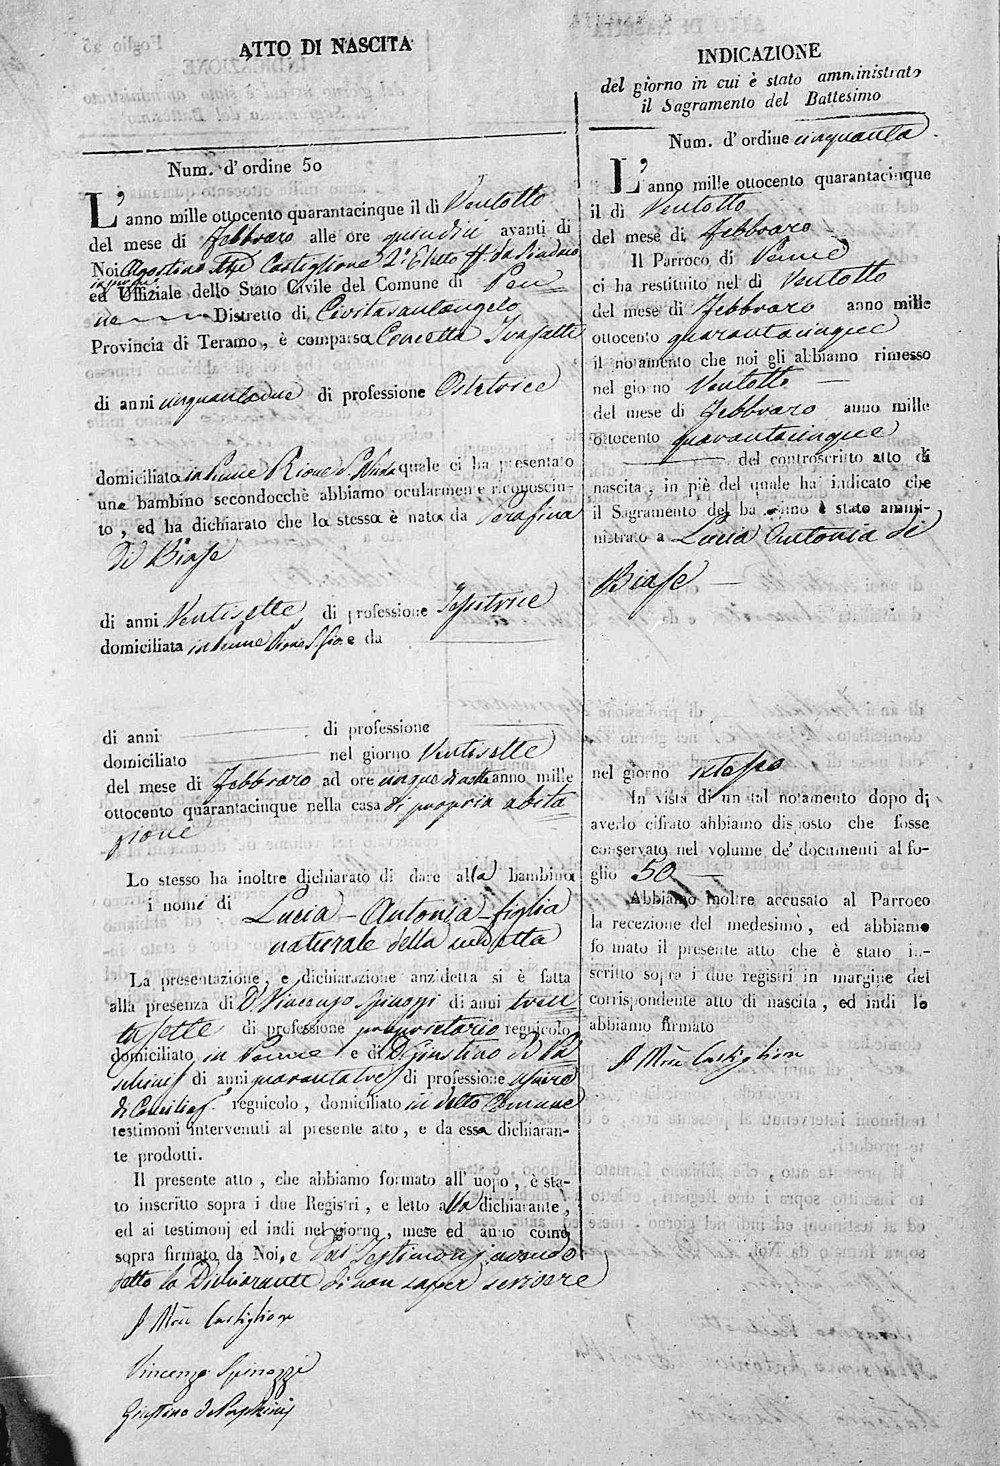 ATTO DI NASCITA
Num. d'ordine 50
L'anno mille ottocento quarantacinque il dì Ventotto
del mese di Febbraro alle ore quindici avanti di
Noi Agostino Castiglione 2° Eletto ff da Sindaco
ed Uffiziale dello Stato Civile del Comune di Pen
ne Distretto di Civitasantangelo
Provincia di Teramo, è comparsa Concetta
di anni cinquantadue di professione Ostetrice
domiciliata in Penne Rione quale ci ha presentato
una bambino secondocchè abbiamo ocularmente riconosciu-
to, ed ha dichiarato che la stessa è nata da Serafina
di Biase
di anni Ventisette di professione Tessitrice
domiciliata in Penne Rione S. Gio. e da
di anni di professione
domiciliato nel giorno Ventisette
del mese di Febbraro ad ore cinque di notte anno mille
ottocento quarantacinque nella casa di propria abita
zione
Lo stesso ha inoltre dichiarato di dare alla bambina
i nomi di Lucia - Antonia - figlia
naturale della suddetta
La presentazione, e dichiarazione anzidetta si è fatta
alla presenza di D. Vincenzo Spinozzi di anni tren
tasette di professione proprietario regnicolo
domiciliato in Penne e di D. Giustino de Pa
schinis di anni quarantatre di professione usciere
di Conciliaz. regnicolo, domiciliato in detto Comune
testimoni intervenuti al presente atto, e da essa dichiaran-
te prodotti.
Il presente atto, che abbiamo formato all'uopo, è sta-
to inscritto sopra i due Registri, e letto alla dichiarante,
ed ai testimonj ed indi nel giorno, mese ed anno come
sopra firmato da Noi, e dai Testimonj avendo
detto la Dichiarante di non saper scrivere
Castiglione
Vincenzo Spinozzi
Giustino de Paschinis
INDICAZIONE
del giorno in cui è stato amministrato
il Sagramento del Battesimo
Num. d'ordine cinquanta
L'anno mille ottocento quarantacinque
il di Ventotto
del mese di Febbraro
Il Parroco di Penne
ci ha restituito nel di Ventotto
del mese di Febbraro anno mille
ottocento quarantacinque
il notamento che noi gli abbiamo rimesso
nel giorno Ventotto
del mese di Febbraro anno mille
ottocento quarantacinque
del controscritto atto di
nascita, in piè del quale ha indicato che
il Sagramento del battesimo è stato ammi-
nistrato a Lucia Antonia di
Biase
nel giorno istesso
In vista di un tal notamento dopo di
averlo cifrato abbiamo disposto che fosse
conservato nel volume de' documenti al fo-
glio 50
Abbiamo inoltre accusato al Parroco
la recezione del medesimo, ed abbiamo
formato il presente atto che è stato in-
scritto sopra i due registri in margine del
corrispondente atto di nascita, ed indi lo
abbiamo firmato
Castiglione